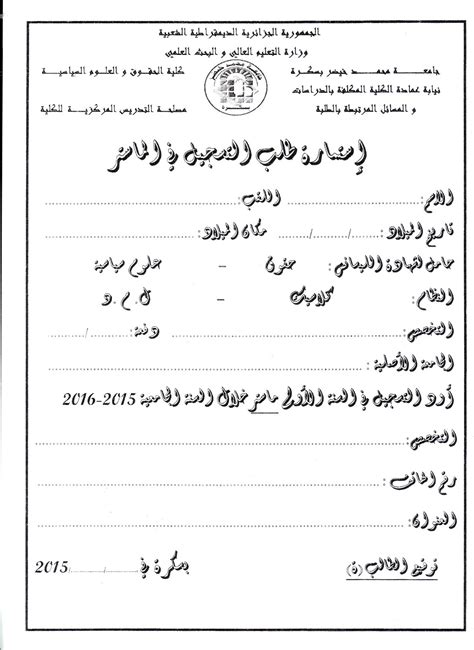 الجمهورية الجزائرية الديمقراطية الشعبية
وزارة التعليم العالي و البحث العلمي
جامعة محمد خيضر بسكرة
نيابة عمادة الكلية المكلفة بالدراسات
و المسائل المرتبطة بالطلبة
كلية الحقوق و العلوم السياسية
مصلحة التدريس المركزية للكلية
إستمارة طلب التسجيل في الماستر
الاسم:.................... اللقب:....................
تاريخ الميلاد :......../......../........ مكان الميلاد:....................
حامل لشهادة الليسانس : حقوق – علوم سياسية
النظام: كلاسيك – ل.م.د
التخصص:.................... دفعة:........../..........
الجامعة الأصلية :....................
أود التسجيل في السنة الأولى ماستر خلال السنة الجامعية 2015-2016
التخصص:....................
رقم الهاتف :....................
العنوان:....................
توقيع الطالب(ة)
بسكرة في ......../......../2015